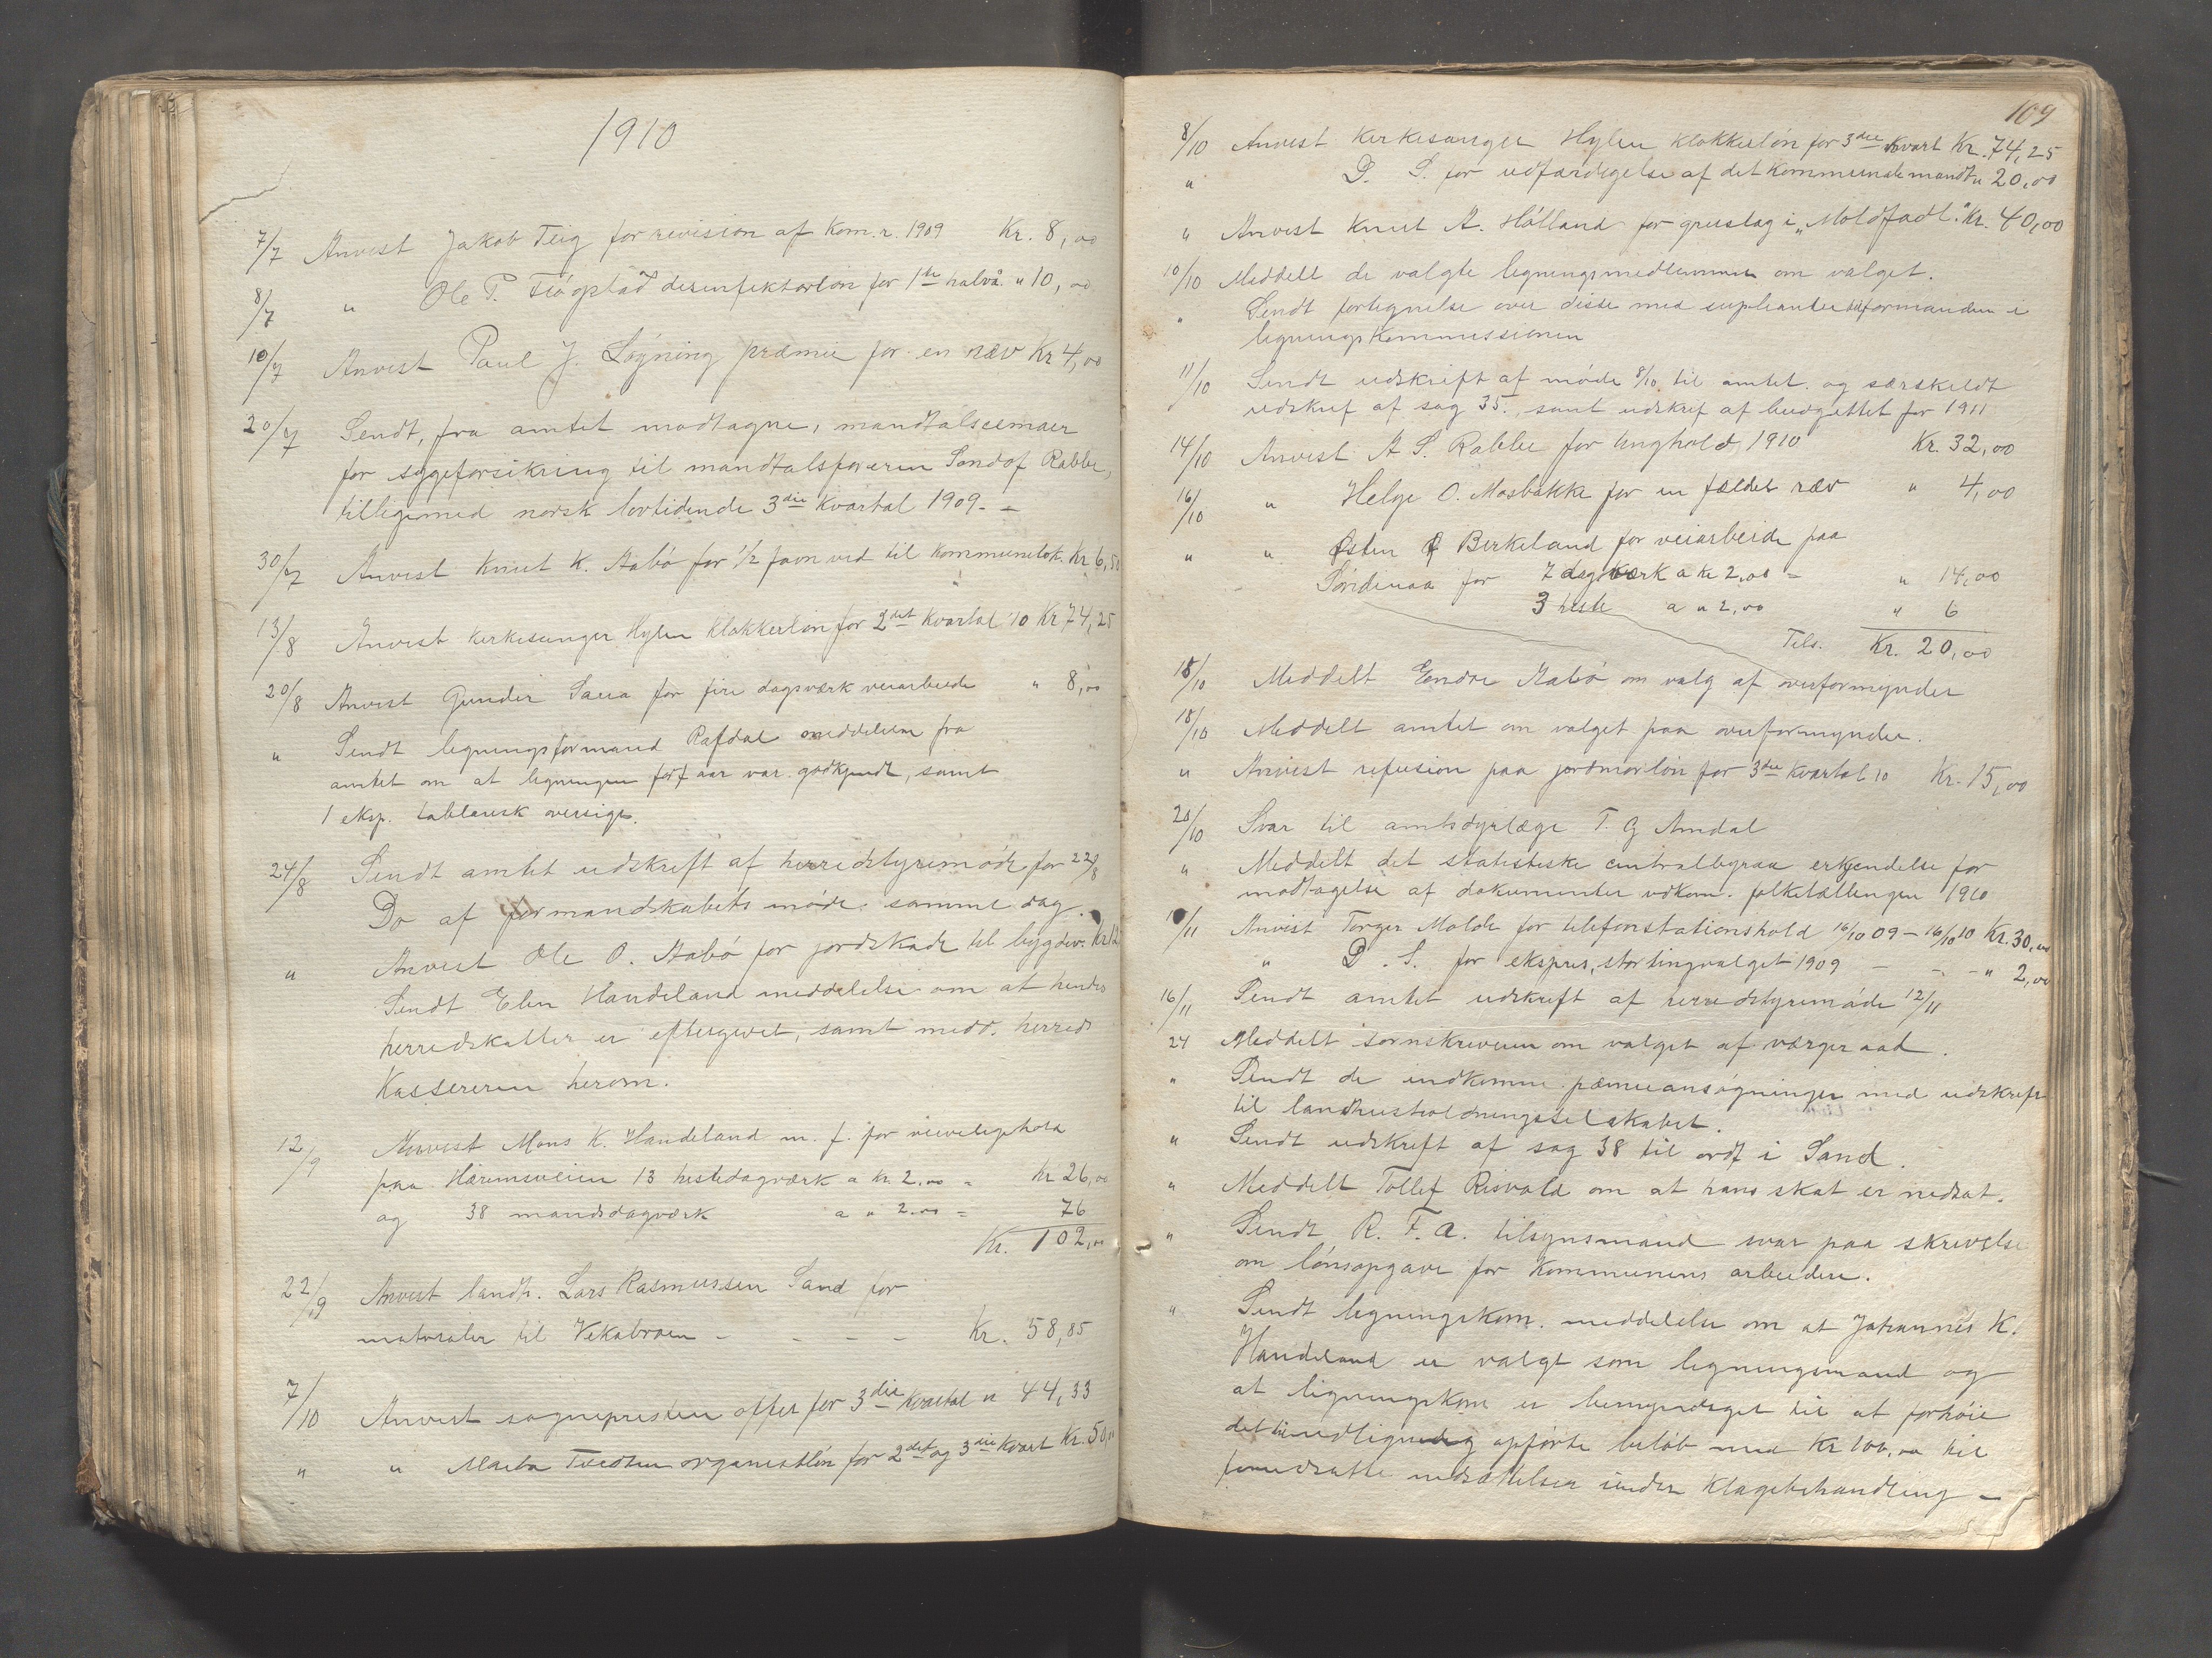 1910
7/7 Anvist Jakob Teig for revision af Kom.r. 1909 Kr. 8,00
8/7 " Ole T. desinfektørløn for 1ste halvå. " 10,00
10/7 Anvist Paul J. Løgning præmie for en ræv Kr 4,00
20/7 Sendt, fra amtet modtagne, mandtalscemaer
for sygeforsikring til mandtalsføreren Sondof Rabbe,
tilligemed norsk lovtidende 3die kvartal 1909. –
30/7 Anvist Knut K. Aabø for 1/2 favn ved til Kommunelok. Kr 6,50
13/8 Anvist kirkesanger Hylen klokkerløn for 2det kvartal '10 Kr 74,25
20/8 Anvist Gunder Saua for fire dagsværk veiarbeide " 8,00
" Sendt legningsformand Rafdal meddelelse fra
amtet om at legningen for f aar var godkjendt, samt
1 eksp. tablarisk oversigt.
24/8 Sendt amtet udskrift af herredstyremøde for 22/8
Do af formandskabets møde samme dag.
" Anvist Ole O. Aabø for jordskade til bygdev. Kr 12
Sendt Elen Handeland meddelelse om at hendes
herredskatter er eftergivet, samt medd. herreds
Kassereren herom.
12/9 Anvist Mons K. Handeland m. f. for veivedligehold
paa Hæremsveien 13 hestedagværk a kr. 2.00 = Kr 26,00
og 38 mandsdagværk a " 2.00 = 76
Kr. 102,00
22/9 Anvist landh. Lars Rasmussen Sand for
materialer til Vekabroen – – – – Kr. 58,85
7/10 Anvist sognepresten offer for 3die kvartal " 44,33
" " Tveden organistløn for 2det og 3die kvart Kr. 50,00
109
8/10 Anvist kirkesanger Hylen klokkerløn for 3die kvart Kr. 74,25
" D. S. for udfærdigelse af det kommunale mandt. " 20,00
" Anvist Knut A. Hålland for grustag i "Moldfadl." Kr. 40,00
10/10 Meddelt de valgte legningsmedlemmer om valget.
" Sendt fortegnelse over disse med supleanter til formanden i
legningskommissionen
11/10 Sendt udskrift af møde 8/10 til amtet. og særskildt
udskrif af sag 35. samt udskrif af budgettet for 1911
14/10 Anvist A S. Rabbe for tinghold 1910 Kr. 32,00
16/10 " Helge O. Mosbakke for en fældet ræv " 4,00
" " Østen Ø Birkeland for veiarbeide paa
Søridenaa for 7 dagsværk a kr 2,00 = " 14,00
3 heste a " 2,00 " 6
Tils. Kr. 20,00
18/10 Meddelt Endre Aabø om valg af overformynder
18/10 Meddelt amtet om valget paa overformynder.
" Anvist refusion paa jordmorløn for 3die kvartal 10 Kr. 15,00
20/10 Svar til amtsdyrlæge T. G Amdal
" Meddelt det statistiske centralbyraa erkjendelse for
modtagelse af dokumenter vdkom. folketællingen 1910
/11 Anvist Torger Molde for telefonstationshold 16/10 09 – 16/10 10 Kr. 30,00
" D. S. for ekspres, stortingvalget 1909 – – – " 2,00
16/11 Sendt amtet udskrift af herredstyremøde 12/11
24 Meddelt sornskriveren om valget af værgeraad.
" Sendt de indkomne pæmieansøgninger med udskrift
til landhusholdningsselskabet.
" Sendt udskrift af sag 38 til ordf i Sand.
" Meddelt Tollef Risvold om at hans skat er nedsat.
" Sendt R. F. A. tilsynsmand svar paa skrivelse
om lønsopgave for kommunens arbeidere.
" Sendt legningskom. meddelelse om at Johannes K.
Handeland er valgt som legningsmand og
at ligningskom er bemyndiget til at forhøie
det til opførte beløb med Kr 100,00 til
nedsættelser under klagebehandling –